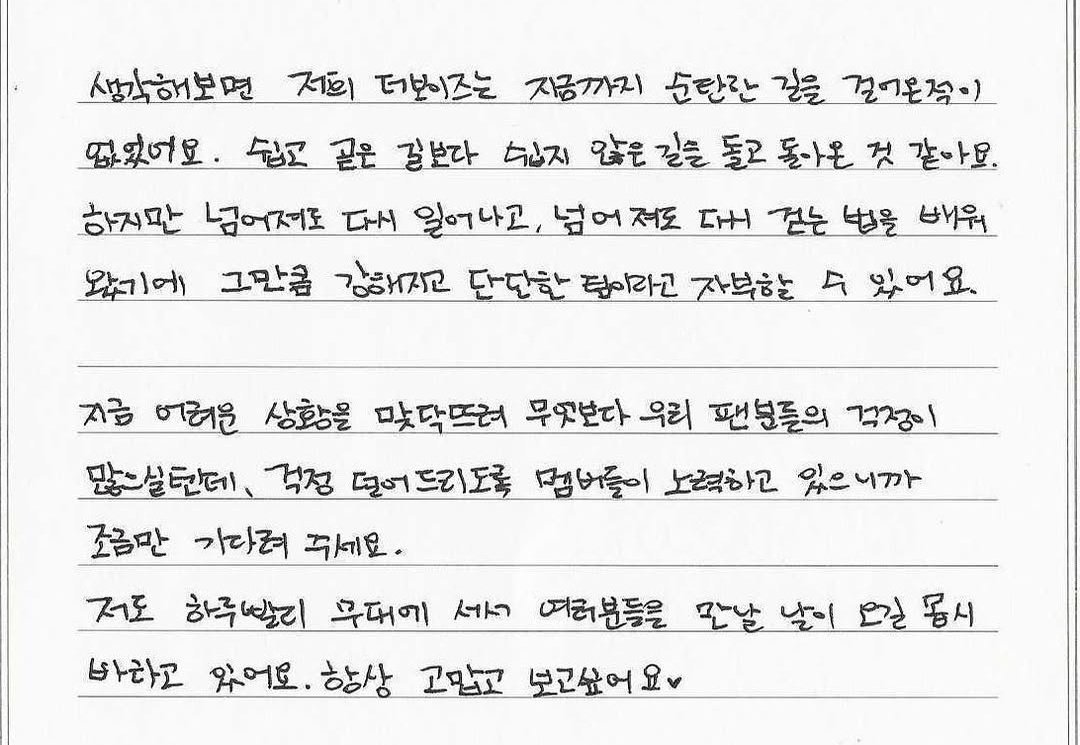 생각해보면 저희 더보이즈는 지금까지 순탄한 길을 걸어온적이
없었어요. 쉽고 곧은 길보다 쉽지 않은 길을 돌고 돌아온 것 같아요.
하지만 넘어져도 다시 일어나고, 넘어져도 다시 걷는 법을 배워
왔기에 그만큼 강해지고 단단한 팀이라고 자부할 수 있어요.
지금 어려운 상황을 맞닥뜨려 무엇보다 우리 팬분들의 걱정이
많으실텐데, 걱정 덜어드리도록 멤버들이 노력하고 있으니까
조금만 기다려 주세요.
저도 하루빨리 무대에 서서 여러분들을 만날 날이 오길 몹시
바라고 있어요. 항상 고맙고 보고싶어요♥